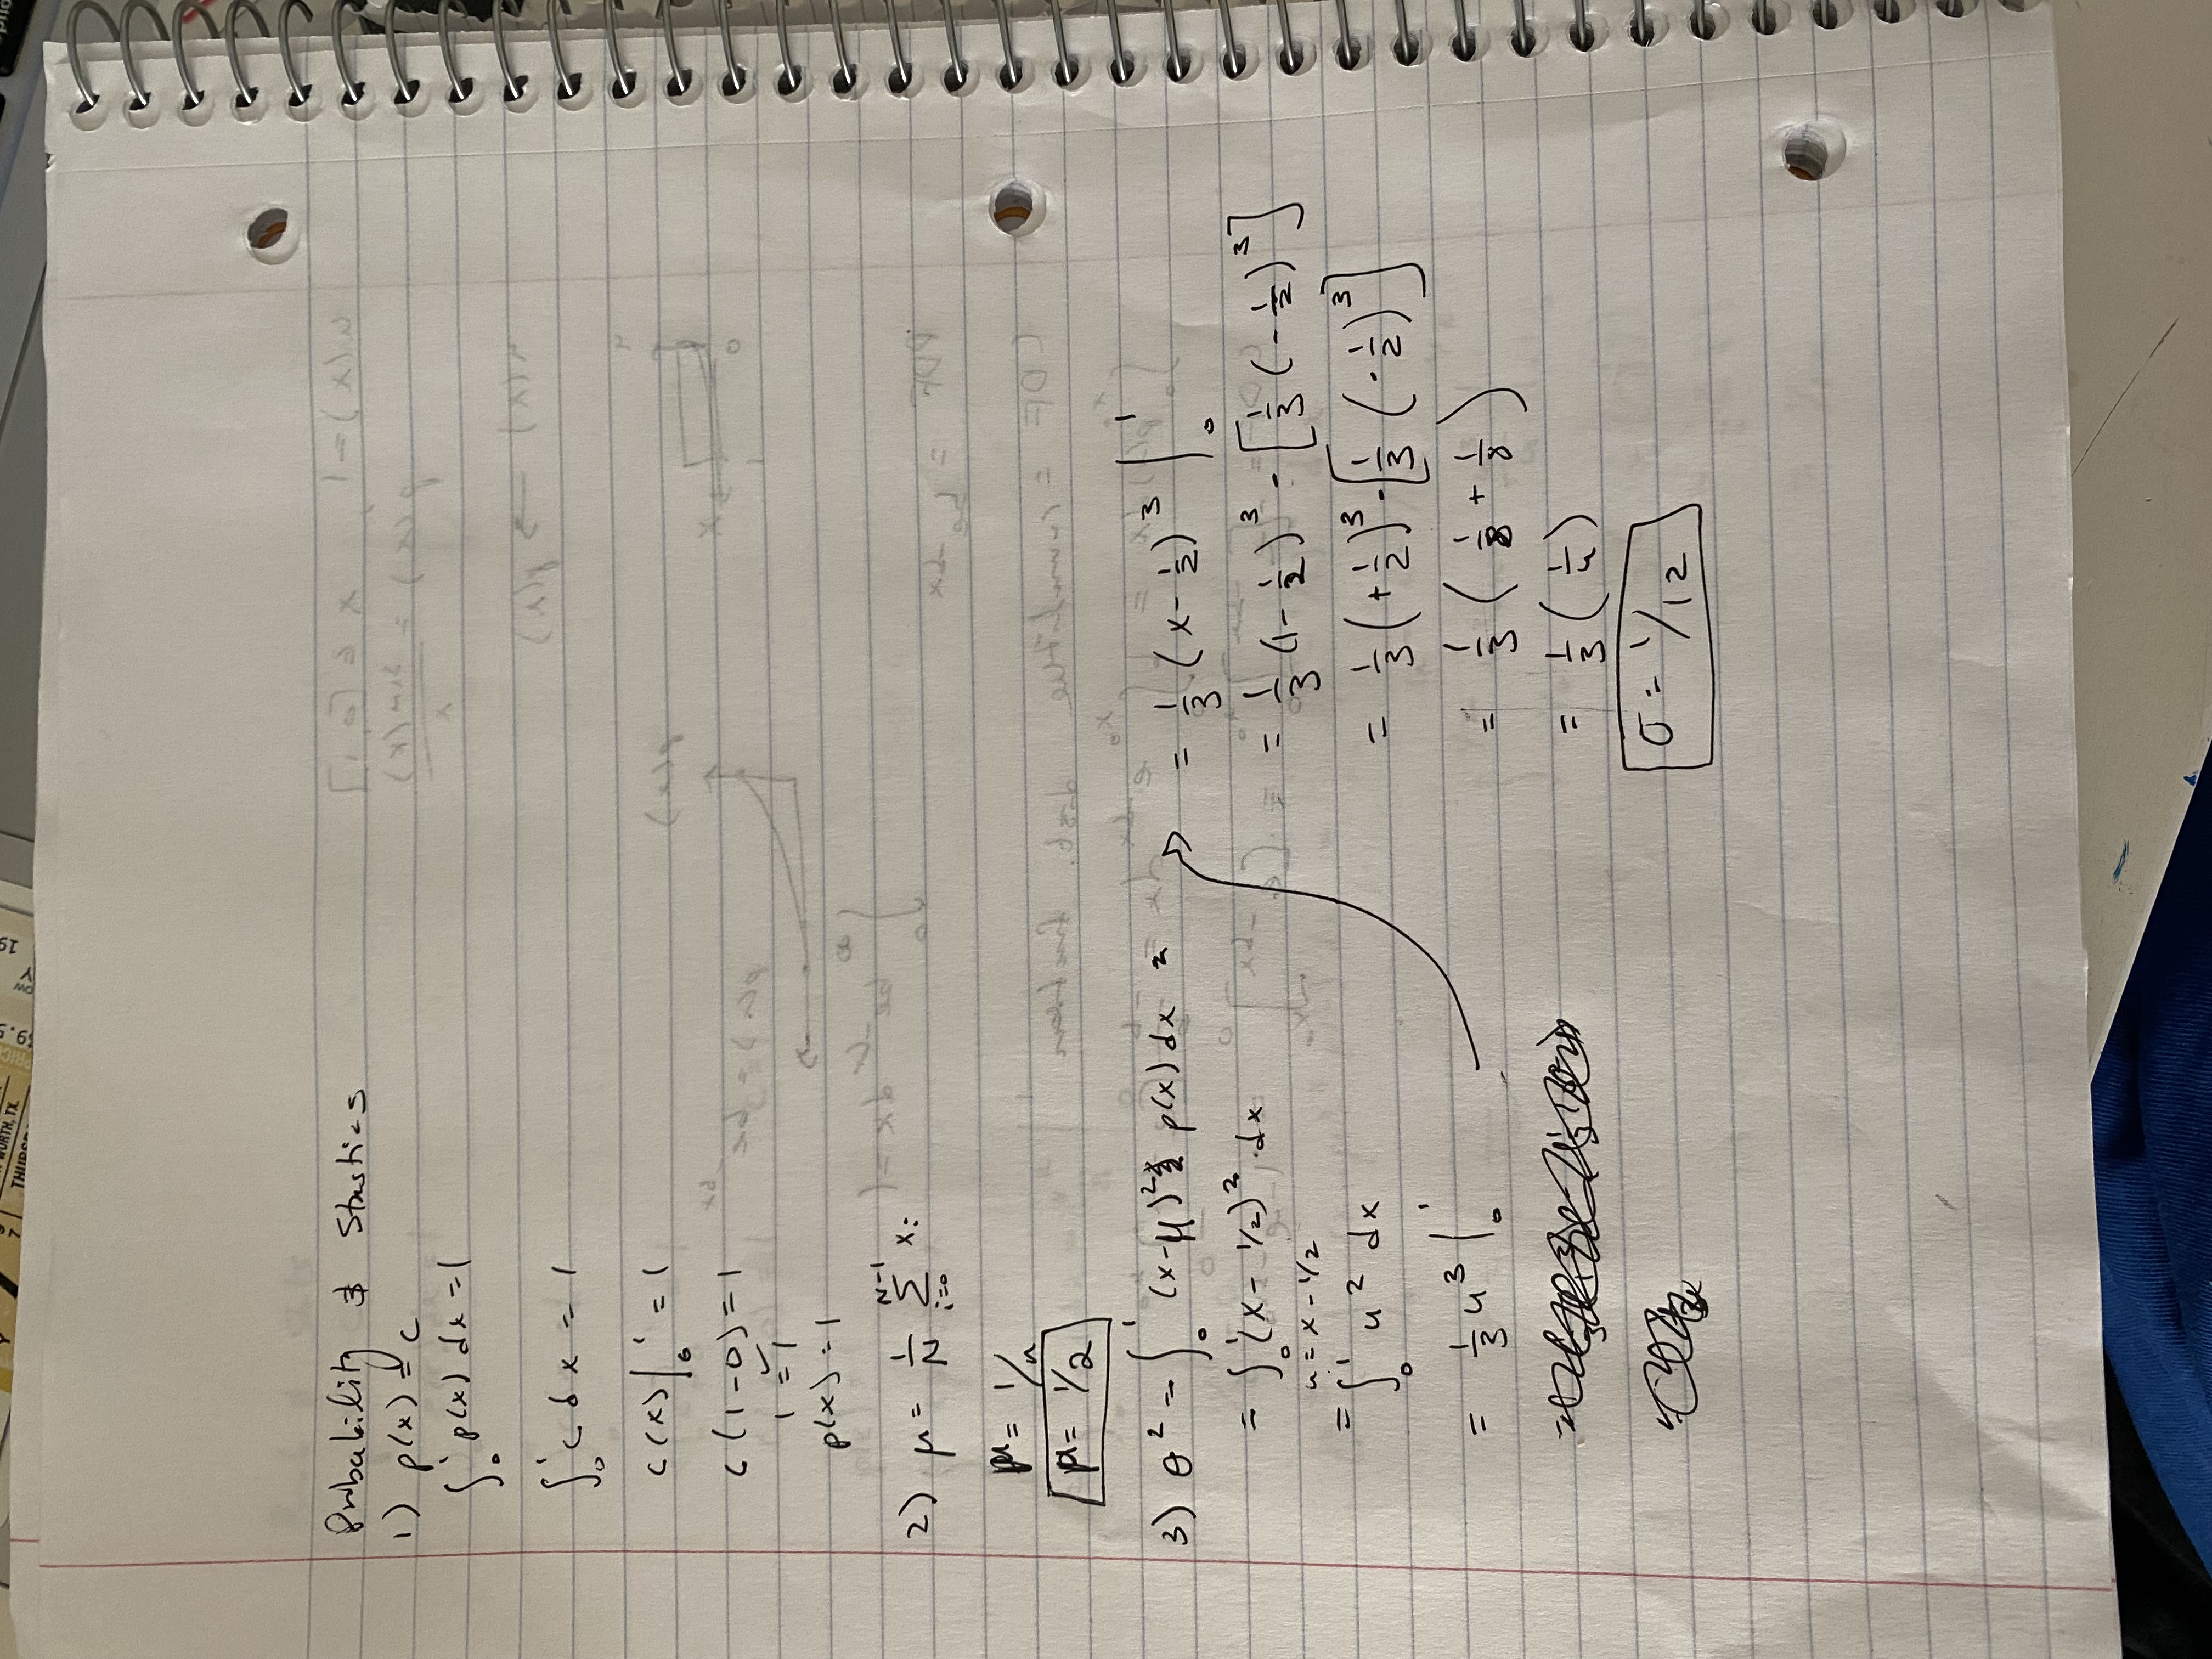 WORTH, TX.
THURSD
Probability & Stastics
1) p(x) = c
∫₀¹ p(x) dx = 1
∫₀¹ c dx = 1
c(x)|₀¹ = 1
c(1-0) = 1
1 = 1 ✓
p(x) = 1
2) μ = 1/N Σ_{i=0}^{N-1} xᵢ
μ = 1/n
μ = 1/2
3) σ² = ∫₀¹ (x-μ)² p(x) dx =
= ∫₀¹ (x - 1/2)² · dx
u = x - 1/2
= ∫₀¹ u² dx
= 1/3 u³ |₀¹
= 1/3 (x - 1/2)³ |₀¹
= 1/3 (1 - 1/2)³ - [1/3 (-1/2)³]
= 1/3 (+1/2)³ - [1/3 (-1/2)³]
= 1/3 (1/8 + 1/8)
= 1/3 (1/4)
σ = 1/12